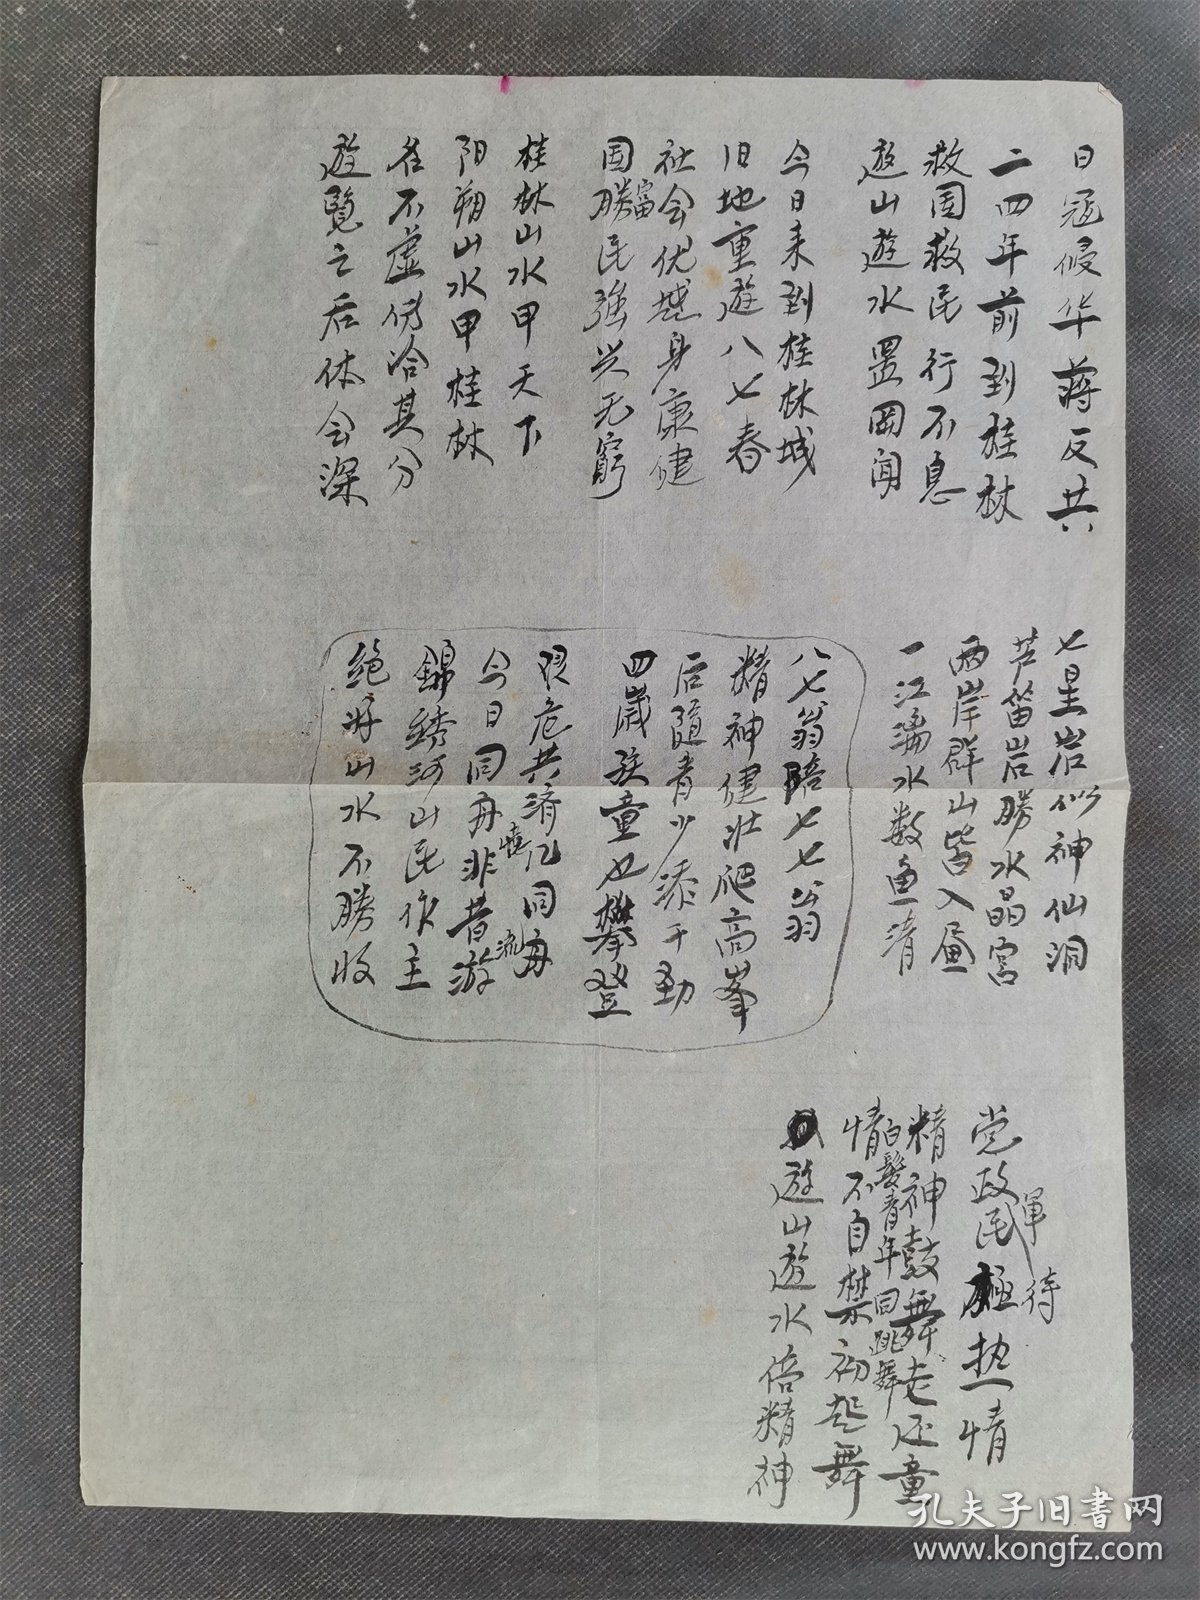 日寇侵华蒋反共
二四年前到桂林
救国救民行不息
遊山遊水置罔闻
今日来到桂林城
旧地重遊八七春
社会优越身康健
国勝民強兴无窮
富
桂林山水甲天下
阳朔山水甲桂林
名不虚传洽其分
遊覽之后体会深
七星岩似神仙洞
芦笛岩勝水晶宮
两岸群山皆入画
一江漓水数鱼清
八七翁陪七七翁
精神健壮爬高峯
后隨青少添干劲
四歲孩童也攀登
艰危共济几同舟
今日同舟非昔游
憶
流
錦綉河山民作主
绝好山水不勝收
党政民極热情
軍
待
精神鼓舞老还童
白髮青年同跳舞
情不自禁初起舞
遊山遊水倍精神
孔夫子旧书网
www.kongfz.com